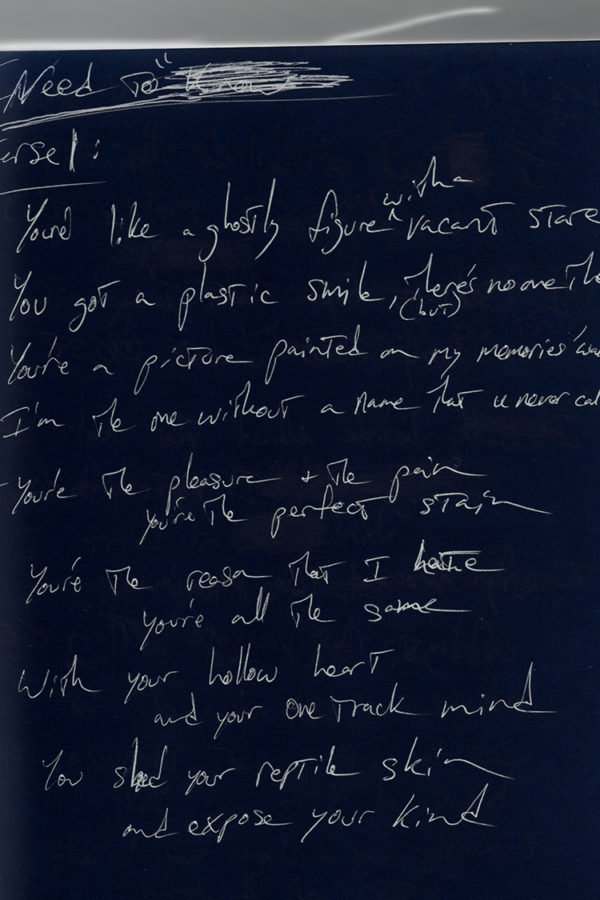 Need To"
Verse 1:
You'd like a ghostly figure with a vacant stare
You got a plastic smile, (but) There's no one The
You're a picture painted on my memories wa
I'm the one without a name that u never cal
You're the pleasure + the pain
you're the perfect stain
You're the reason that I hate
you're all the same
With your hollow heart
and your one Track mind
You shed your reptile skin
and expose your kind